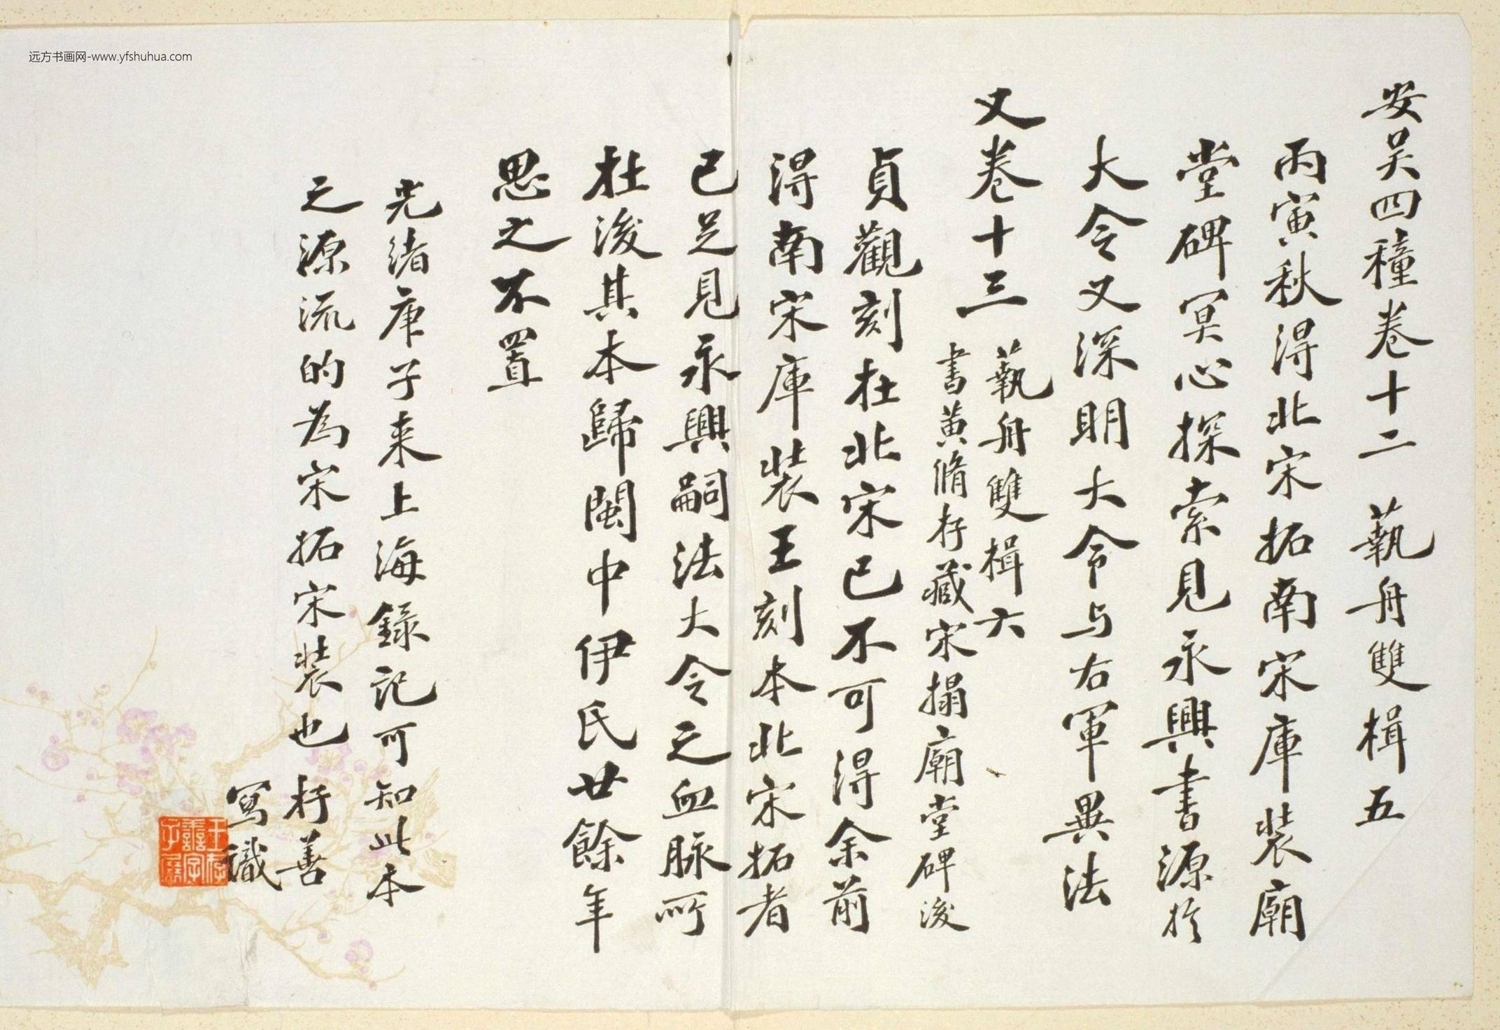 远方书画网-www.yfshuhua.com
安吴四種卷十二 蓺舟雙楫五
丙寅秋得北宋拓南宋庫装廟
堂碑冥心探索見永興書源於
大令又深明大令与右軍異法
又卷十三 蓺舟雙楫六
書黄脩存藏宋搨廟堂碑後
貞觀刻在北宋已不可得余前
得南宋庫装王刻本北宋拓者
已足見永興嗣法大令之血脉所
在後其本歸閩中伊氏廿餘年
思之不置
光緒庚子来上海録記可知此本
之源流的為宋拓宋装也 存善
寫識
王存
善字
子展